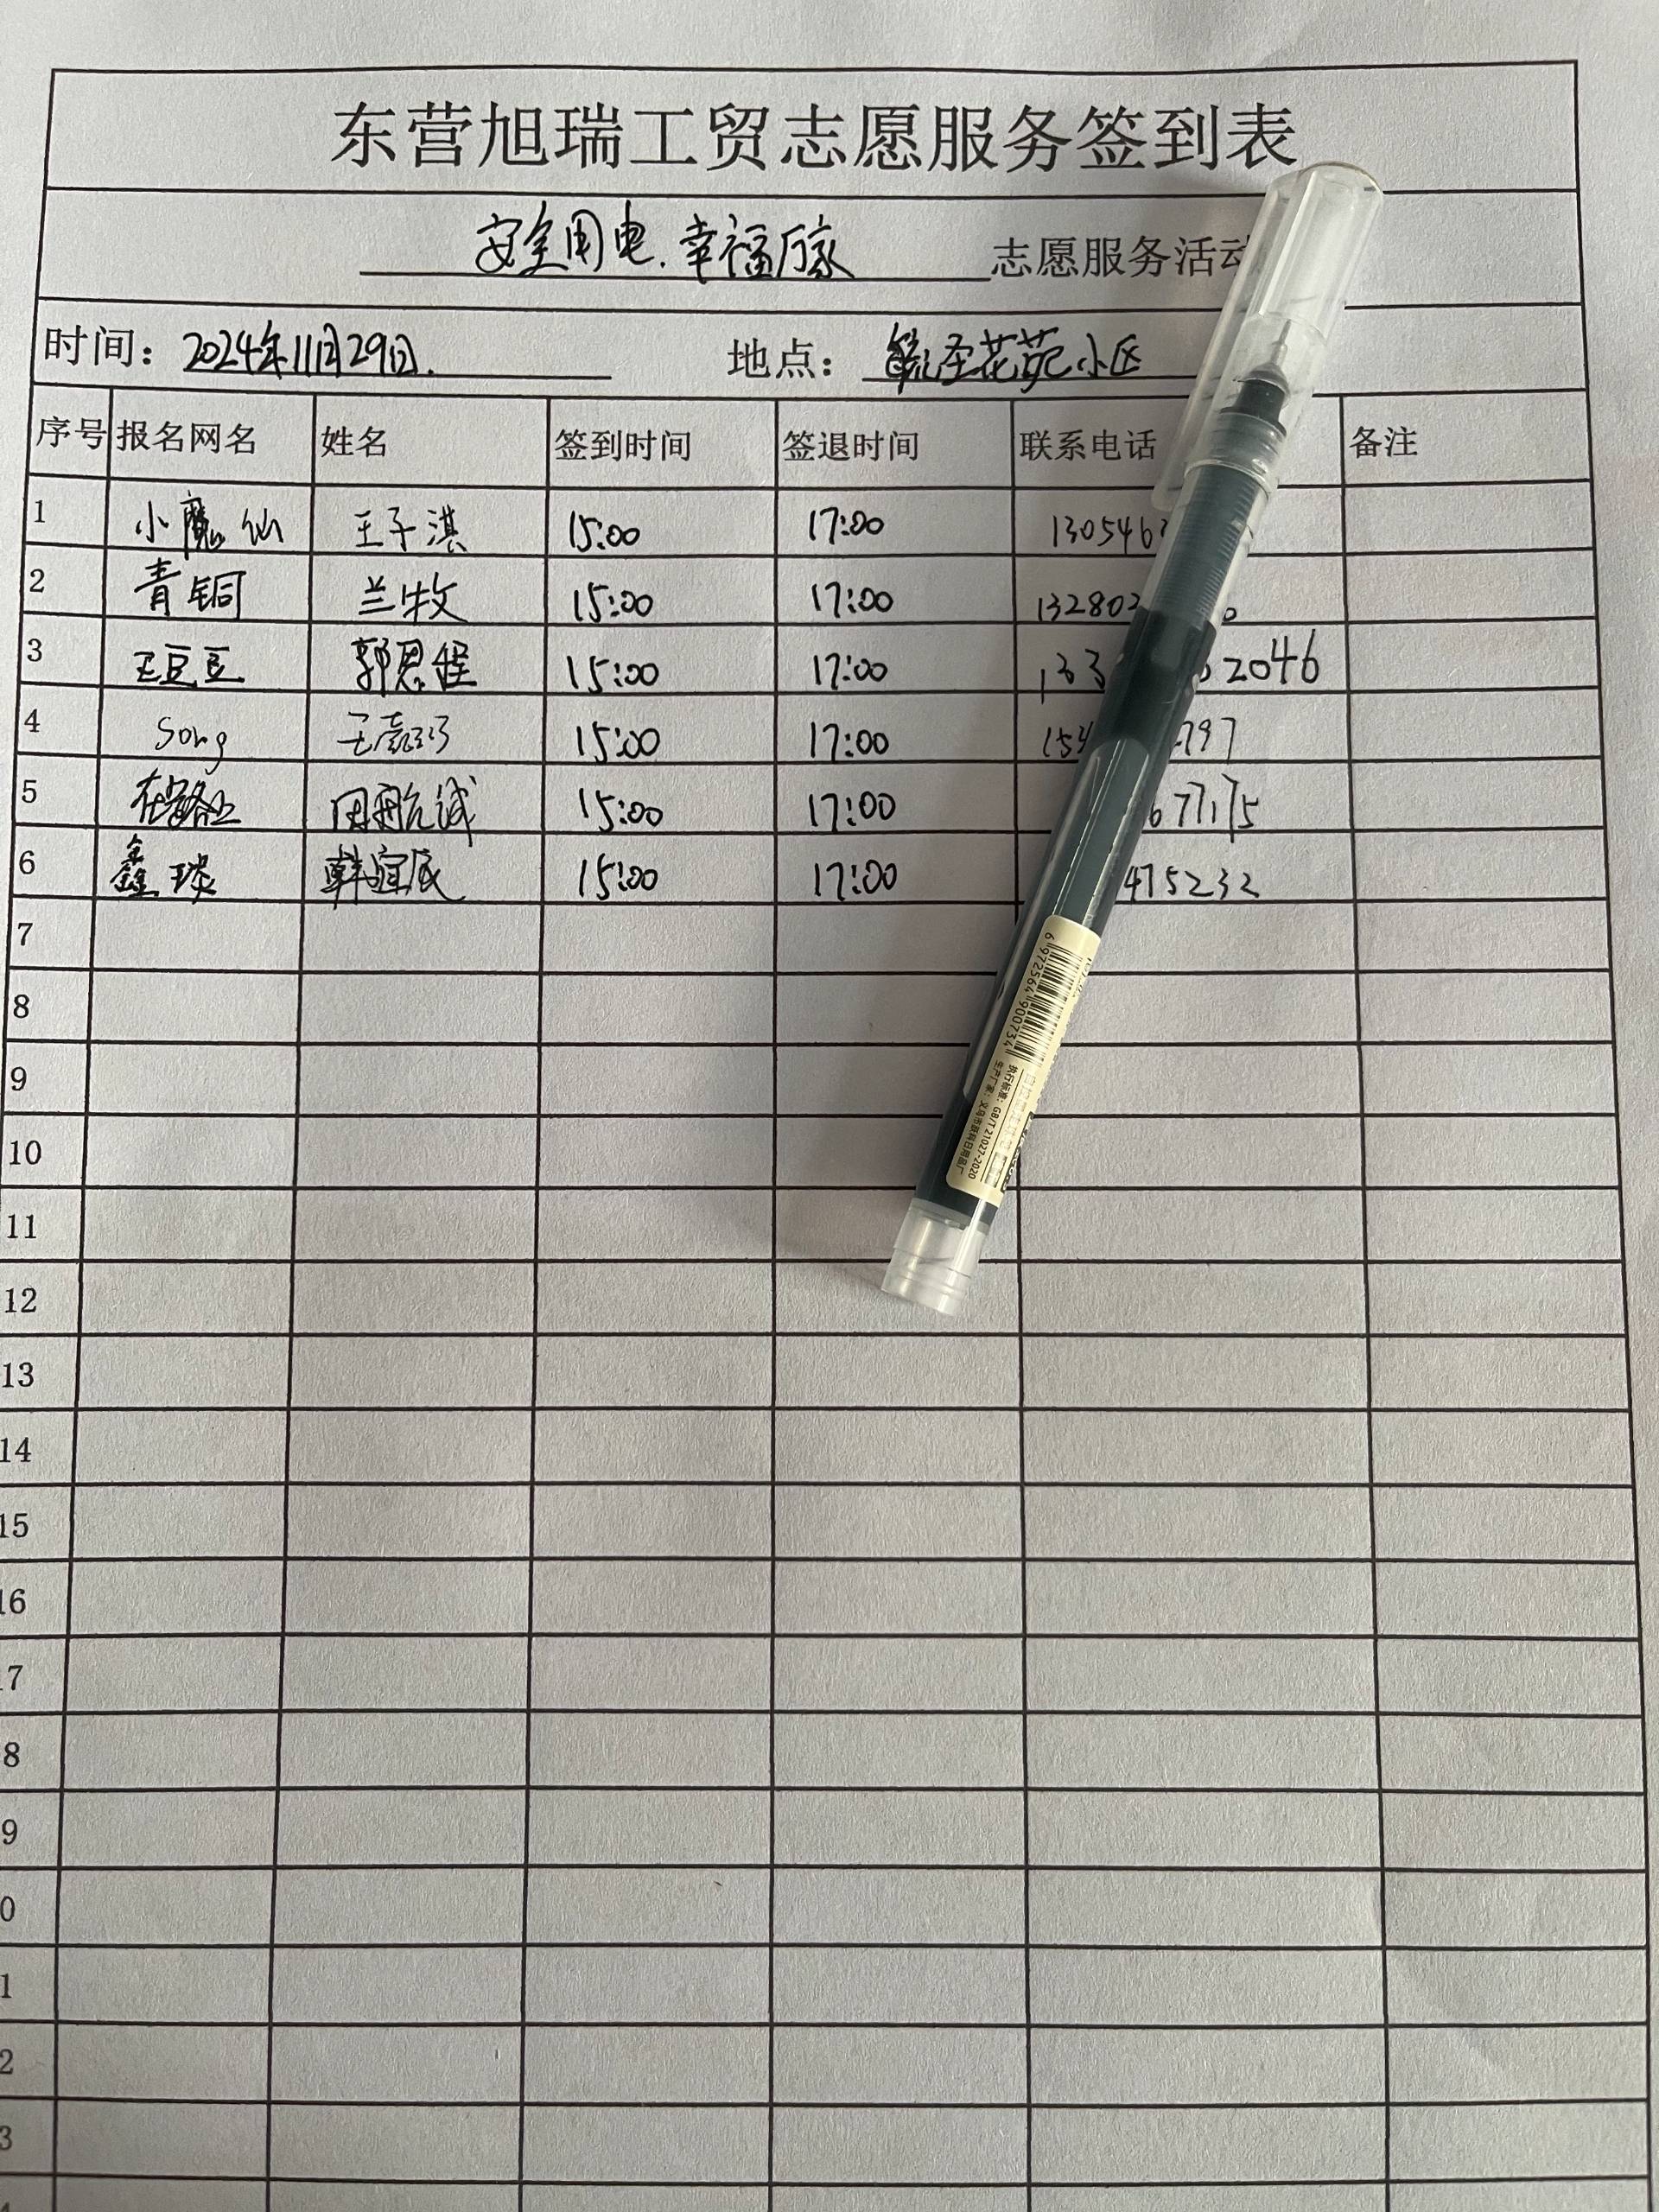 东营旭瑞工贸志愿服务签到表
安全用电.幸福万家 志愿服务活动
时间：2024年11月29日. 地点：毓圣花苑小区
序号 报名网名 姓名 签到时间 签退时间 联系电话 备注
1 小魔仙 王子淇 15:00 17:00 130546
2 青铜 兰牧 15:00 17:00 13280
3 王豆豆 郭恩程 15:00 17:00 133 2046
4 Song 15:00 17:00 15 797
5 在路上 周航诚 15:00 17:00 67175
6 鑫琰 韩宜辰 15:00 17:00 475232
7
8
9
10
11
12
13
14
15
16
7
8
9
0
1
2
3
6 972564 900734
执行标准：GB/T 21027-2020